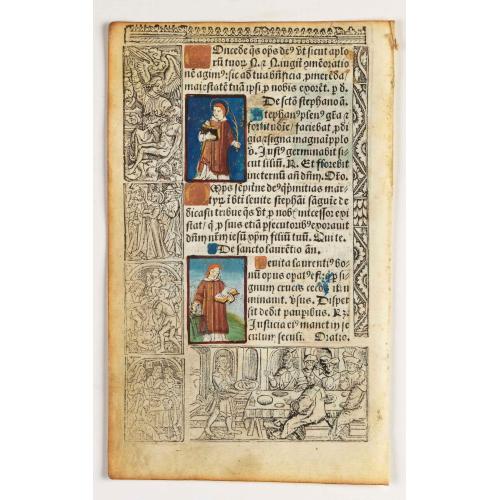 Oncede q̄s op̄s de⁹ vt sicut aplo
rū tuoꝝ N. ⁊ N. iugit̄ ꝯmēoratio
nē agim⁹: sic ad tua b̄n̄ficia ꝓmerēda/
maiestatē tuā ipsi ꝓ nobis exorēt. ꝑ d.
De sctō stephano añ.
Stephan⁹ plen⁹ gr̄a ⁊
fortitudīe / faciebat ꝓdi
gia ⁊ signa magna ī pplo
v̄. Just⁹ germinabit si
cut liliū. R. Et florebit
in eternū añ dñm. Oro.
sēpiterne de⁹ q̇ primitias mar
tyꝝ ī bt̄i levite stephāi sāguīe de
dicasti tribue q̄s vt ꝓ nob̄ intercessor exi
stat / q̇ ꝓ suis etiā ꝑsecutorib⁹ exoravit
dñm nr̄m iesū xp̄m filiū tuū. Qui te.
De sancto laurētio añ.
Levita laurenti⁹ bo
nū opus opat⁹ est: q̇ ꝑ si
gnum crucis cecos illu
minavit. v̄sus. Disper
sit dedit paupibus. R⁊
Justicia ei⁹ manet in se
culum seculi. Oratio.